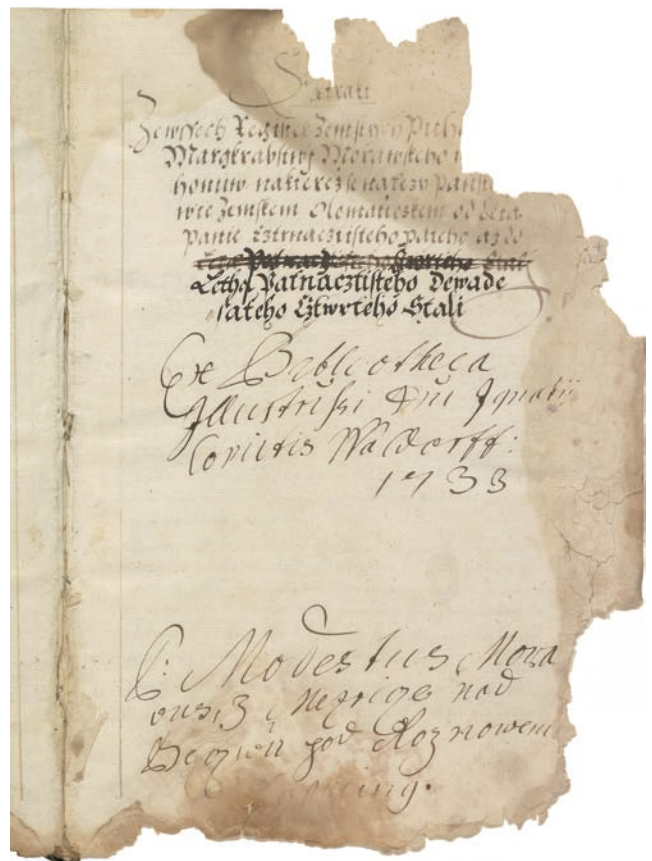 Extract
Zewssech Register Zemskych Puho
Margkrabstwj Morawskeho
honuw na kterez se nalezy Panst
wie Zemskem Olomauczkem od Leta
Panie Cztrnacztisteho pateho az do
Letha Patnacztisteho Dewade
sateho Cztwrteho Stali
Ex Bibliotheca
Illustrissi Dni Ignatij
Comitis Waldorff:
1733
P: Modestus Mora
nad
pod Roznowem